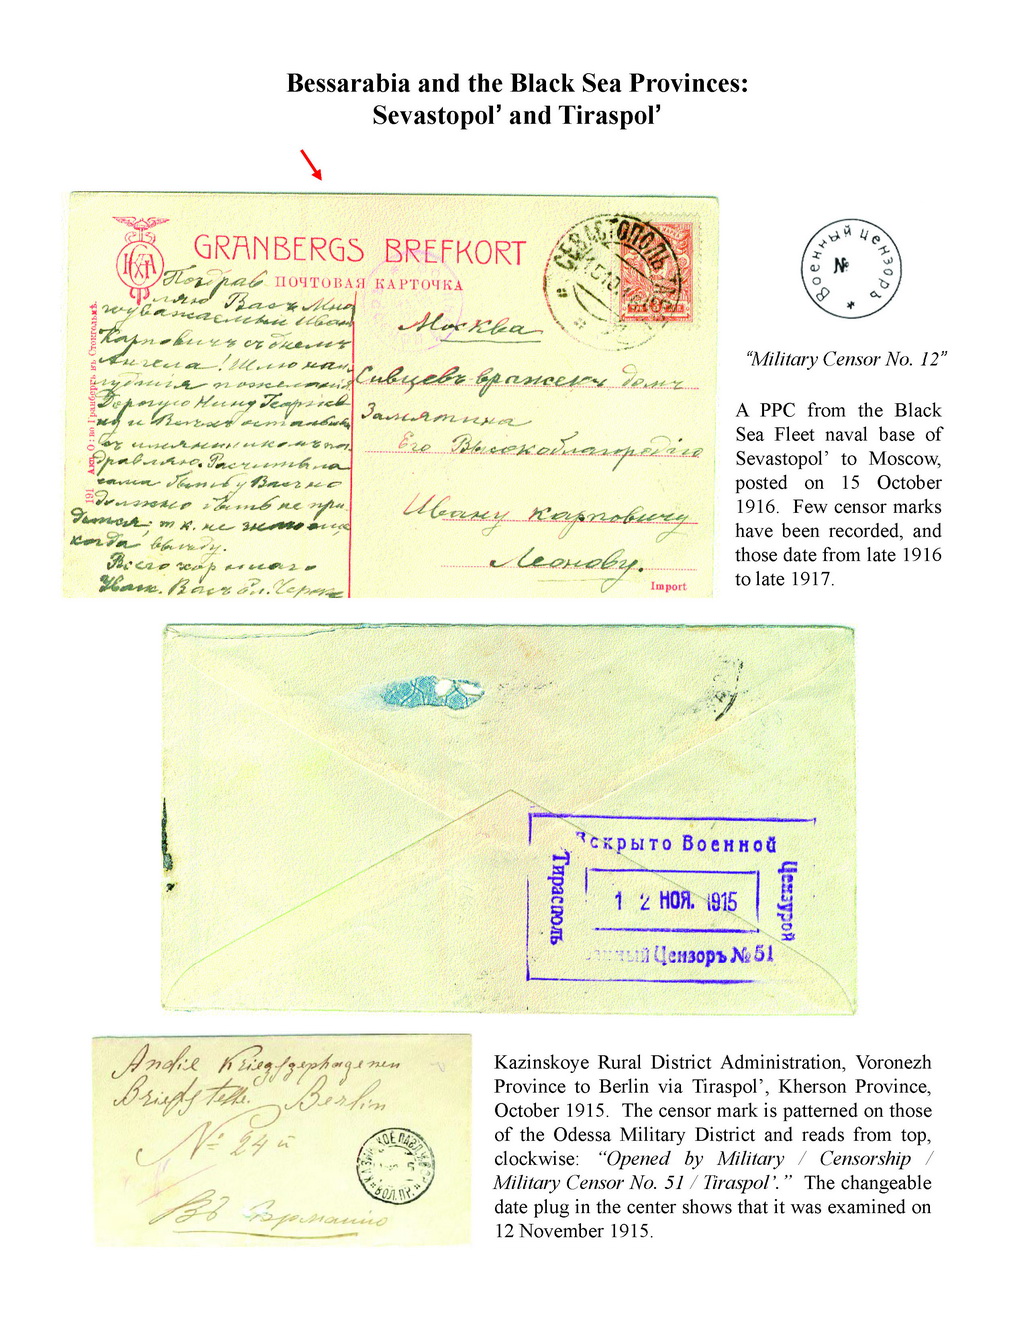 Bessarabia and the Black Sea Provinces:
Sevastopol’ and Tiraspol’
GRANBERGS BREFKORT
ПОЧТОВАЯ КАРТОЧКА
СЕВАСТОПОЛЬ
Поздрав
ляю Васъ Мно
гоуважаемый Иван
Карповичъ съ днемъ
Ангела! Шлю
пожелания
Дорогую Нину
и Всехъ
Расчитывала
сама быть у Васъ но
должно быть не при
дется, т. к. не знаю еще
когда выеду.
Всего хорошаго
Москва
Сивцевъ вражекъ домъ
Замятина
Его Высокоблагородію
Ивану Карповичу
Леонову.
Import
191 Акц. О:во Гранбергъ въ Стокгольмѣ.
Военный цензоръ
№
*
“Military Censor No. 12”
A PPC from the Black
Sea Fleet naval base of
Sevastopol’ to Moscow,
posted on 15 October
1916. Few censor marks
have been recorded, and
those date from late 1916
to late 1917.
Вскрыто Военной
Цензурой
Тирасполь
1 2 НОЯ. 1915
Цензоръ № 51
An die Kriegsgephagenen
Briefstelle. Berlin
№ 24й
Въ Германію
Kazinskoye Rural District Administration, Voronezh
Province to Berlin via Tiraspol’, Kherson Province,
October 1915. The censor mark is patterned on those
of the Odessa Military District and reads from top,
clockwise: “Opened by Military / Censorship /
Military Censor No. 51 / Tiraspol’.” The changeable
date plug in the center shows that it was examined on
12 November 1915.